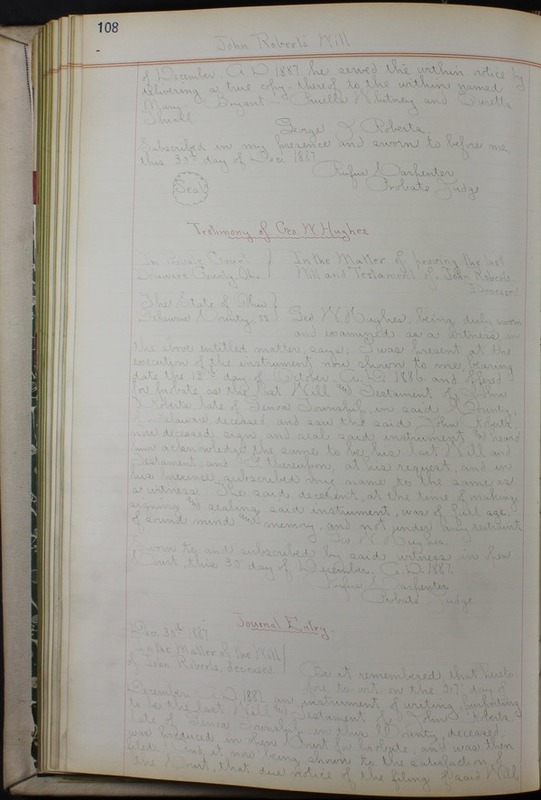 108
John Roberts Will
of December A.D. 1887 he served the within notice by
delivering a true copy thereof to the within named
Mary Bryant Whitney and
George J. Roberts
Subscribed in my presence and sworn to before me
this 30th day of Dec. 1887
Rufus Carpenter
Probate Judge
Seal
Testimony of Geo W. Hughes
In Court
Delaware County, Ohio
In the Matter of proving the last
Will and Testament of John Roberts
Deceased
The State of Ohio
Delaware County, ss
Geo W. Hughes, being duly sworn
and examined as a witness in
the above entitled matter, says, I was present at the
execution of the instrument now shown to me, bearing
date the day of October A.D. 1886 and offered
for probate as the last Will and Testament of John
Roberts late of Genoa Township in said County,
deceased and saw the said John Roberts
now deceased sign and seal said instrument and heard
him acknowledge the same to be his last Will and
Testament, and I thereupon, at his request, and in
his presence, subscribed my name to the same as
a witness. The said decedent, at the time of making
signing and sealing said instrument, was of full age
of sound mind and memory, and not under any restraint
Geo W. Hughes
Sworn to and subscribed by said witness in open
Court, this 30 day of December A.D. 1887.
Rufus Carpenter
Probate Judge
Journal Entry.
Dec. 30th 1887
In the Matter of the Will
of John Roberts, deceased
Be it remembered, that hereto-
fore to wit, on the 27th day of
December A.D. 1887 an instrument of writing purporting
to be the last Will and Testament of John Roberts
late of Genoa Township in this County, deceased,
was produced in open Court for probate and was then
filed. And, it now being shown to the satisfaction of
the Court, that due notice of the filing of said Will